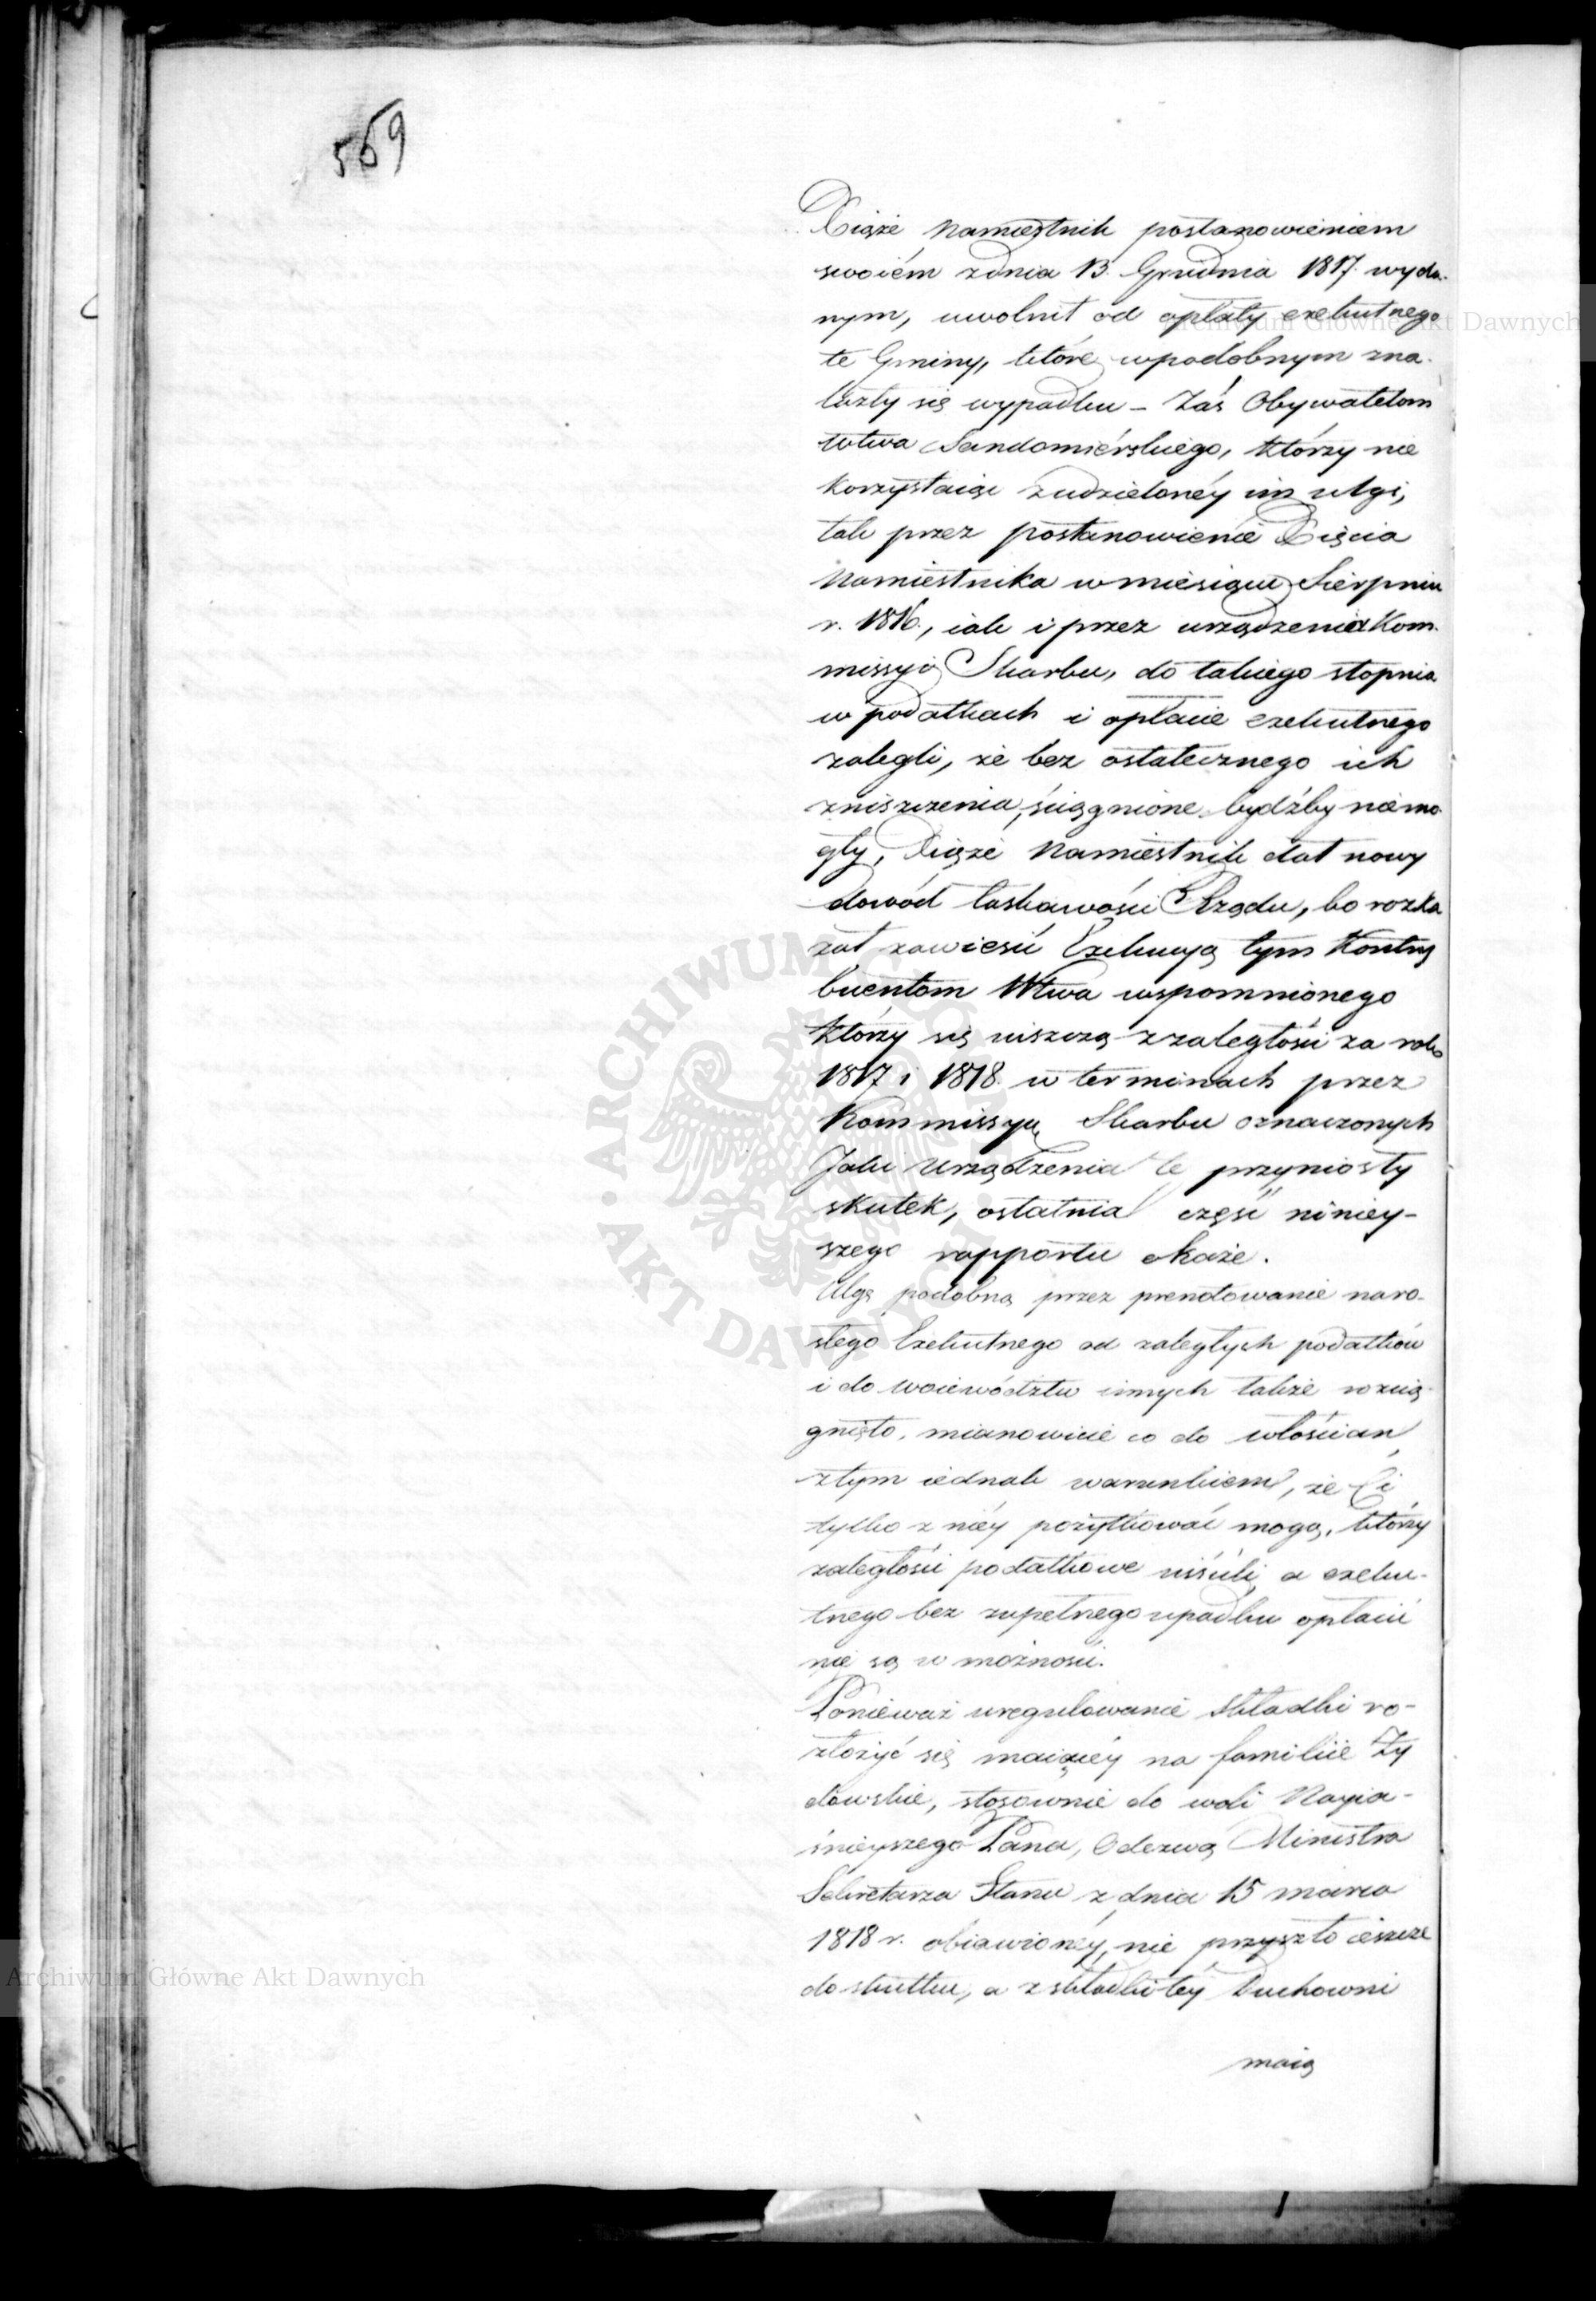 569
Xiąże Namiestnik postanowieniem
swoiém z dnia 13. Grudnia 1817. wyda-
nym, uwolnił od opłaty exekutnego
te Gminy, które w podobnym zna-
lazły się wypadku – Zaś Obywatelom
Wtwa Sandomiérskiego, którzy nie
korzystaiąc z udzielonéy im ulgi,
tak przez postanowienie Xięcia
Namiestnika w miesiącu Sierpniu
r. 1816., iak i przez urządzenia Kom-
missyi Skarbu, do takiego stopnia
w podatkach i opłacie exekutnego
zalegli, że bez ostatecznego ich
zniszczenia, ściągnione bydźby niemo-
gły, Xiąże Namiestnik dał nowy
dowód łaskawości Rządu, bo rozka
zał zawiesić Exekucyą tym Kontry
buentom Wtwa wspomnionego
którzy się uiszczą z zaległości za rok
1817 i 1818. w terminach przez
Kommissyą Skarbu oznaczonych
Jaki urządzenia te przyniosły
skutek, ostatnia część ninięy-
szego rapportu okaże.
Ulgę podobną przez prenotowanie naro-
słego Exekutnego od zaległych podatków
i do Woiewództw innych także rozcią-
gnięto, mianowicie co do włościan
z tym iednak warunkiem, że Ci
tylko z niéy pożytkować mogą, którzy
zaległości podatkowe uiścili, a exeku-
tnego bez zupełnego upadku opłacić
nie są w możności.
Ponieważ uregulowanie składki ro-
złożyć się maiącéy na familiie Ży
dowskie, stosownie do woli Nayia-
śnieyszego Pana, Odezwą Ministra
Sekretarza Stanu z dnia 15 marca
1818 r. obiawionéy, nie przyszło ieszcze
do skutku, a z składki téy Duchowni
maią
Archiwum Główne Akt Dawnych
Archiwum Główne Akt Dawnych
ARCHIWUM GŁÓWNE · AKT DAWNYCH ·